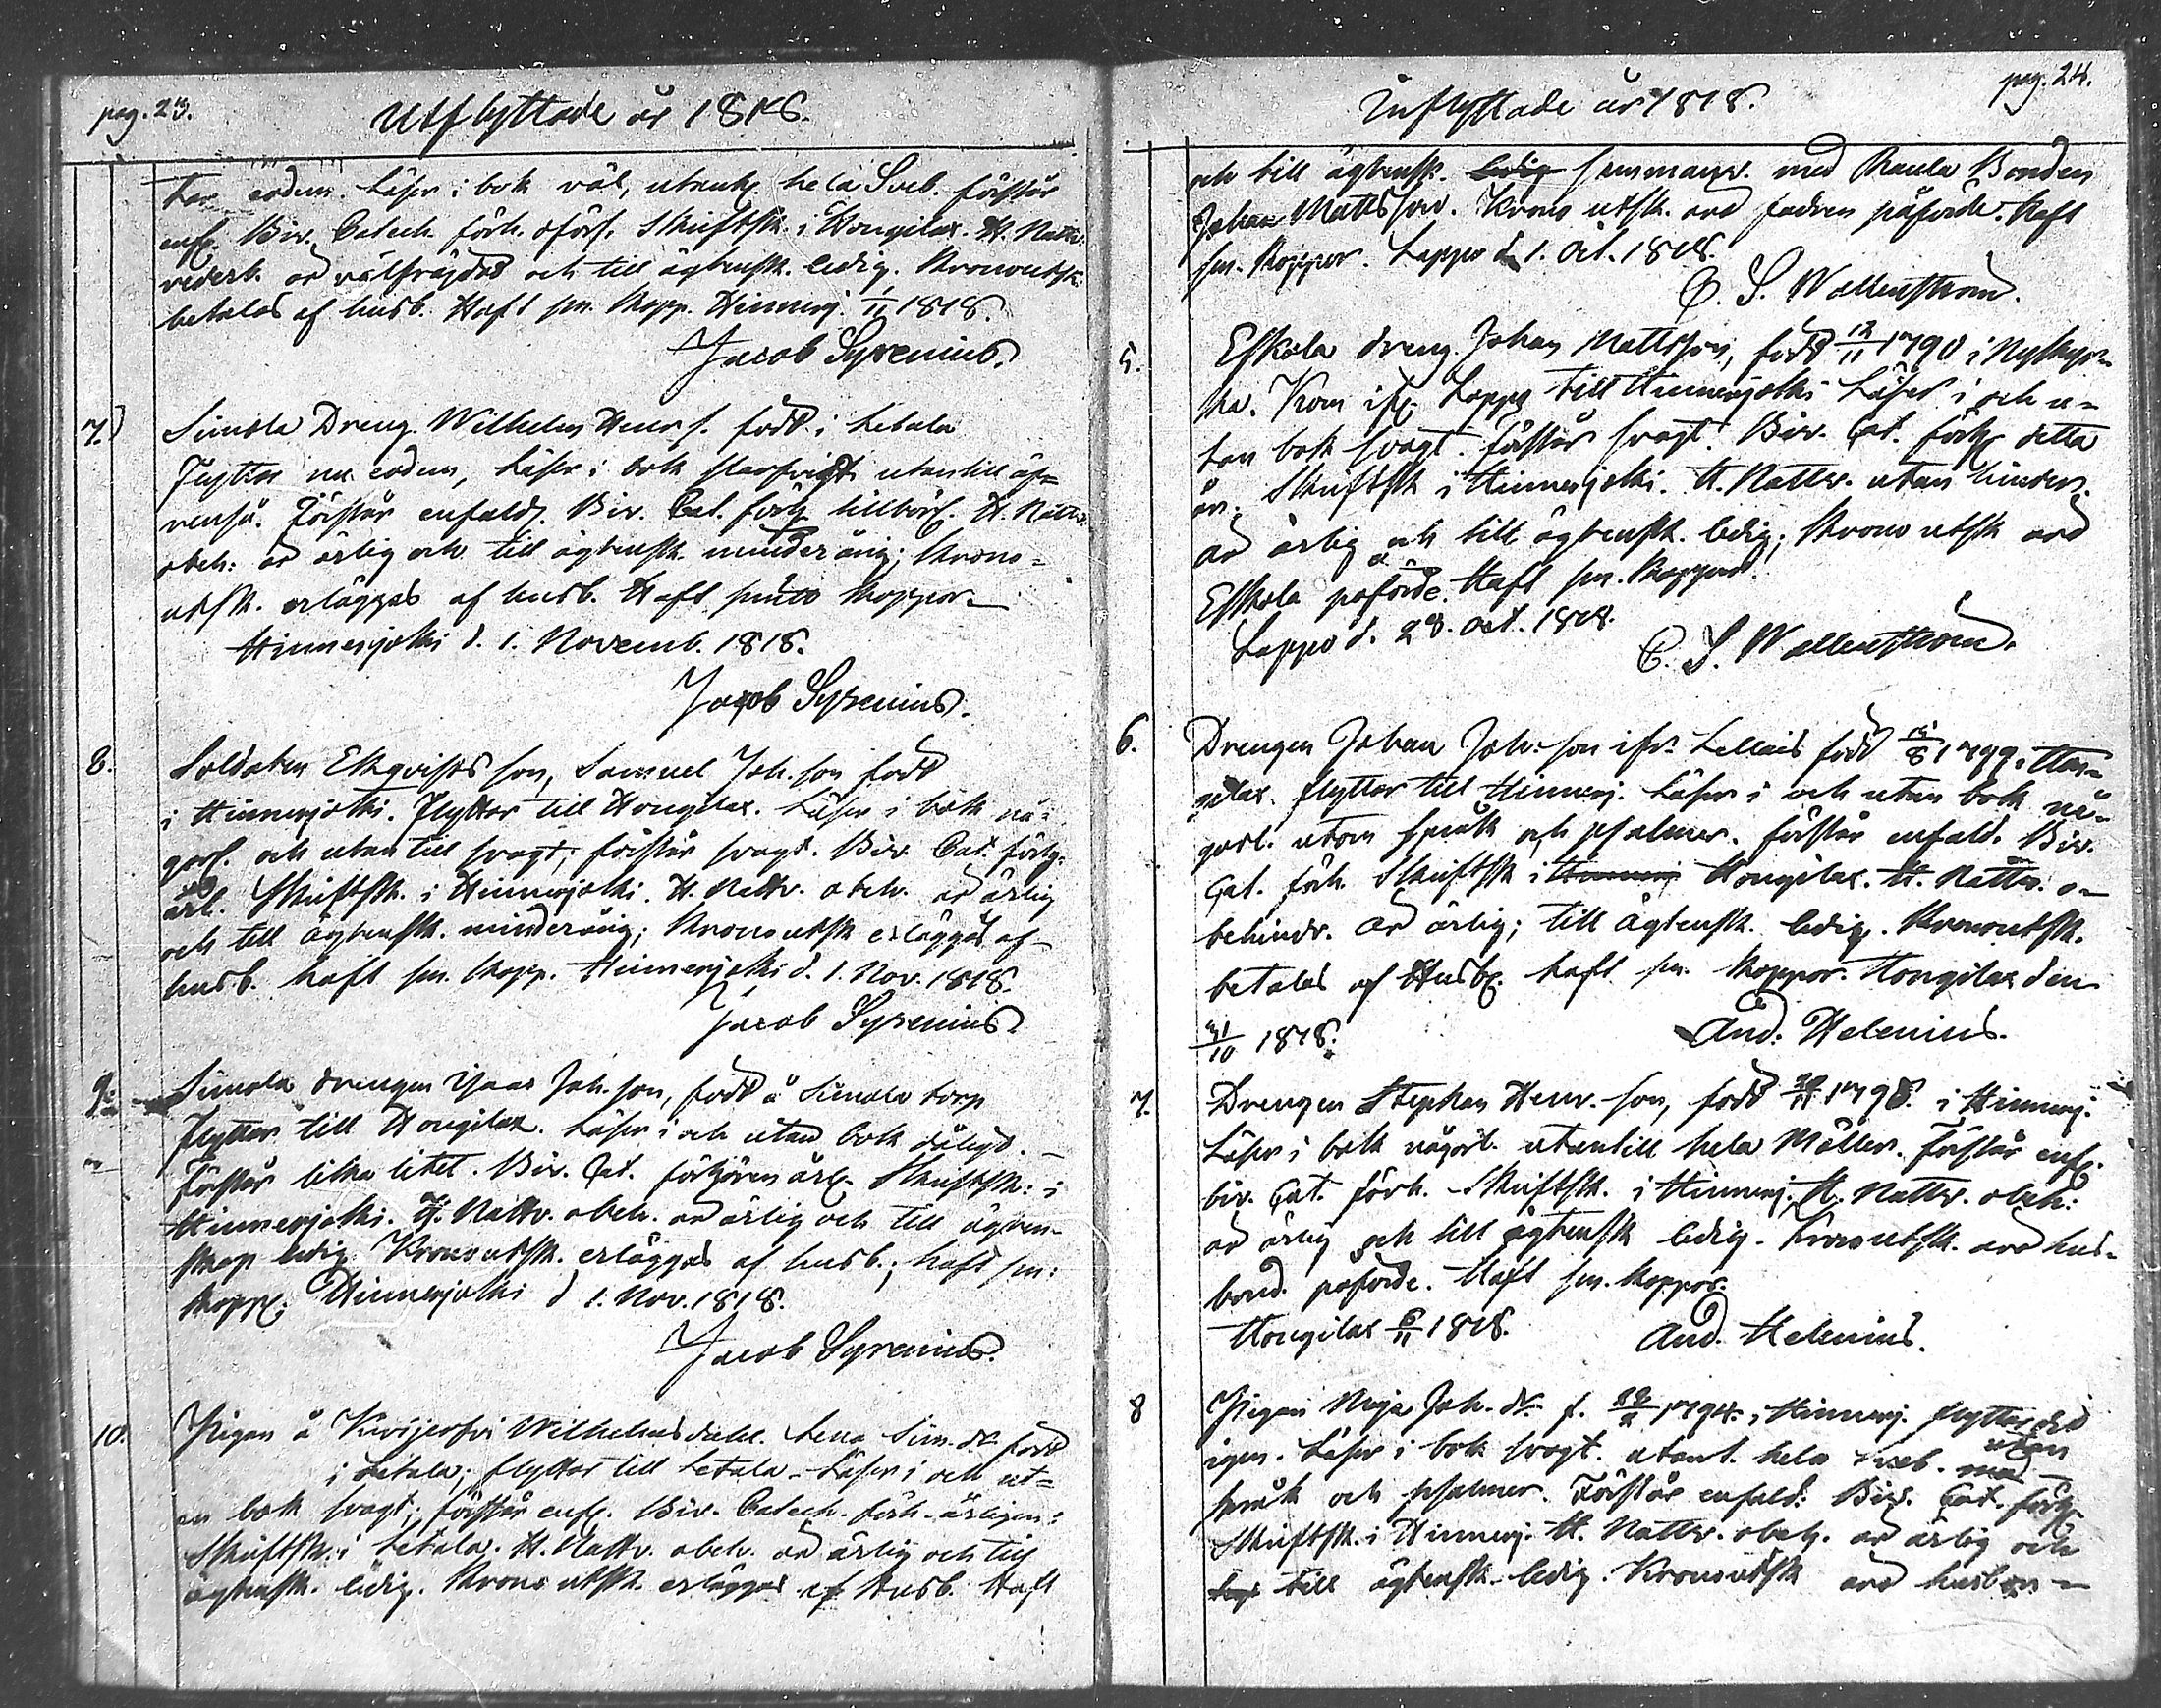 pag. 23.
Utflyttade år 1818.
har eodem. Läser i bok väl, utantz. hela Sveb. förstår
enf. Biv. Catech. förh. Skriftsk. i Hongilax. H. Nattv.
vederb. är välfräjdad och till ägtensk. ledig. Kronoutsk.
betalas af husb. Haft sm. kopp. Hinnerj. 1/11 1818.
Jacob Syrenius.
7.
Simola Dreng Wilhelm Henr. s. född i Letala
Flyttar nu eodem, Läser i bok utantill äf-
venså. Förstår enfald. Biv. Cat. förh. H. Nattv.
obeh. är ärlig och till ägtensk. minderårig; Krono-
utsk. erläggas af husb. Haft koppor
Hinnerjoki d. 1. Novemb. 1818.
Jacob Syrenius.
8.
Soldaten Ekqvists son, Samuel Joh. son född
i Hinnerjoki. Flyttar till Hongilax. Läser i bok nå-
gorl. och utantill svagt; förstår svagt. Biv. Cat. förh.
årl. Skriftsk. i Hinnerjoki. H. Nattv. obeh. är ärlig
och till ägtensk. minderårig; Kronoutsk erläggas af
husb. haft sm. kopp. Hinnerjoki d. 1. Nov. 1818.
Jacob Syrenius
9.
Simola drengen Isaac Joh. son, född å Simola torp
flyttar till Hongilax. Läser i och utan bok dåligt.
Förstår lika litet. Biv. Cat. förhören årl. Skriftsk: i
Hinnerjoki. H. Nattv. obeh. är ärlig och till ägten-
skap ledig. Kronoutsk. erläggas af husb.; haft sm:
kopp. Hinnerjoki d 1. Nov. 1818.
Jacob Syrenius.
10.
Pigan å Kivijerfvi Wilhelmsdahl. Lena Sim. dr. född
i Letala; flyttar till Letala. Läser i och ut-
an bok svagt; förstår enf. Biv. Catech. förh. årligen:
Skriftsk: i Letala. H. Nattv. obeh. är ärlig och till
ägtensk. ledig. Krono utsk. erläggas af Husb. Haft
pag. 24.
Inflyttade år 1818.
och till ägtensk. ledig med Raula Bonden
Johan Mattsson. Krono utsk. äro fadren påförde. Haft
sm. koppor. Lappo d. 1. Oct. 1818.
C. S. Wallenstrom.
5.
Eskola dreng Johan Mattsson, född 12/11 1790 i Nykyr-
ka. Kom ifr. Lappo till Hinnerjoki Läser i och u-
tan bok svagt. förstår svagt. Biv. Cat. förh. detta
år. Skriftsk i Hinnerjoki. H. Nattv. utan hinder.
är ärlig och till ägtensk. ledig; Krono utsk äro
Eskola påförde. Haft sm. koppor.
Lappo d. 28. Oct. 1818.
C. S. Wallenstrom.
6.
Drengen Johan Joh: son ifr. Lellais född 1799. Hon-
gilax. flyttar till Hinnerj. Läser i och utan bok nå-
gorl. utom språk och psalmer. förstår enfald. Biv.
Cat. förh. Skriftsk i Hinnerj Hongilax. H. Nattv. o-
behindr. är ärlig; till ägtensk. ledig. Kronoutsk.
betalas af Husb. haft sm. koppor. Hongilax den
31/10 1818.
And. Helenius.
7.
Drengen Stephan Henr. son, född 1798. i Hinnerj.
Läser i bok någorl. utantill hela Möller. Förstår enf.
biv. Cat. förh. Skriftsk. i Hinnerj. H. Nattv. obeh:
är ärlig och till ägtensk ledig. Kronoutsk. äro hus-
bond. påförde. Haft sm. koppor.
Hongilax 6/11 1818.
And. Helenius.
8
Pigan Maja Joh. dr. f. 1794. i Hinnerj. flyttar dit
igen. Läser i bok svagt. utant. hela Sveb. med utan
språk och psalmer. Förstår enfald: Biv. Cat. förh.
Skriftsk. i Hinnerj. H. Nattv. obeh. är ärlig och
till ägtensk. ledig. Kronoutsk äro husbon-